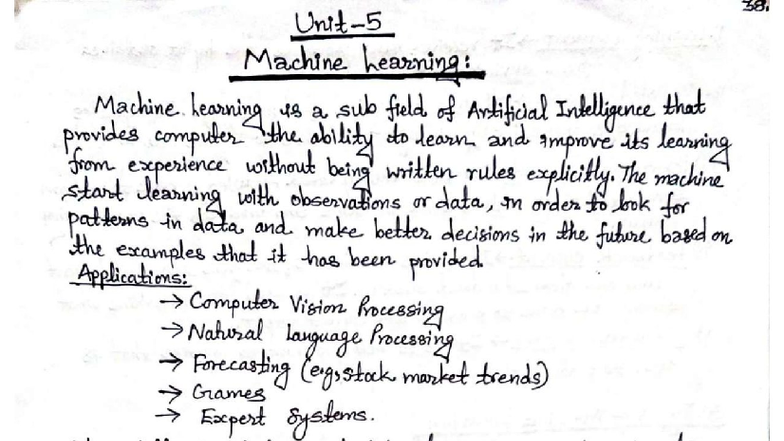 38.
Unit-5
Machine Learning:
Machine Learning is a sub field of Artificial Intelligence that
provides computer the ability to learn and improve its learning
from experience without being written rules explicitly. The machine
start learning with observations or data, in order to look for
patterns in data and make better decisions in the future based on
the examples that it has been provided.
Applications:
→ Computer Vision Processing
→ Natural Language Processing
→ Forecasting (e.g, stock market trends)
→ Games
→ Expert Systems.